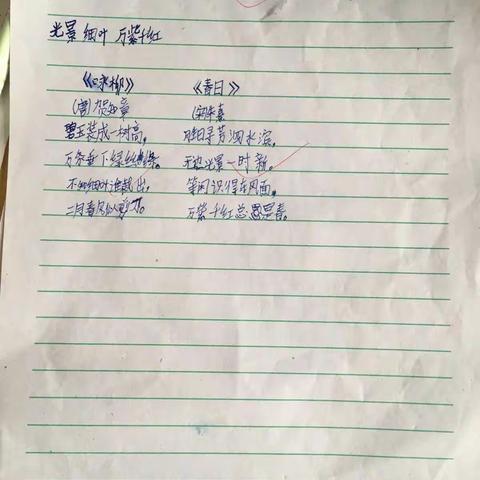 光景 细叶 万紫千红
《咏柳》
(唐)贺知章
碧玉装成一树高,
万条垂下绿丝绦。
不知细叶谁裁出,
二月春风似剪刀。
《春日》
(宋)朱熹
胜日寻芳泗水滨,
无边光景一时新。
等闲识得东风面,
万紫千红总是春。